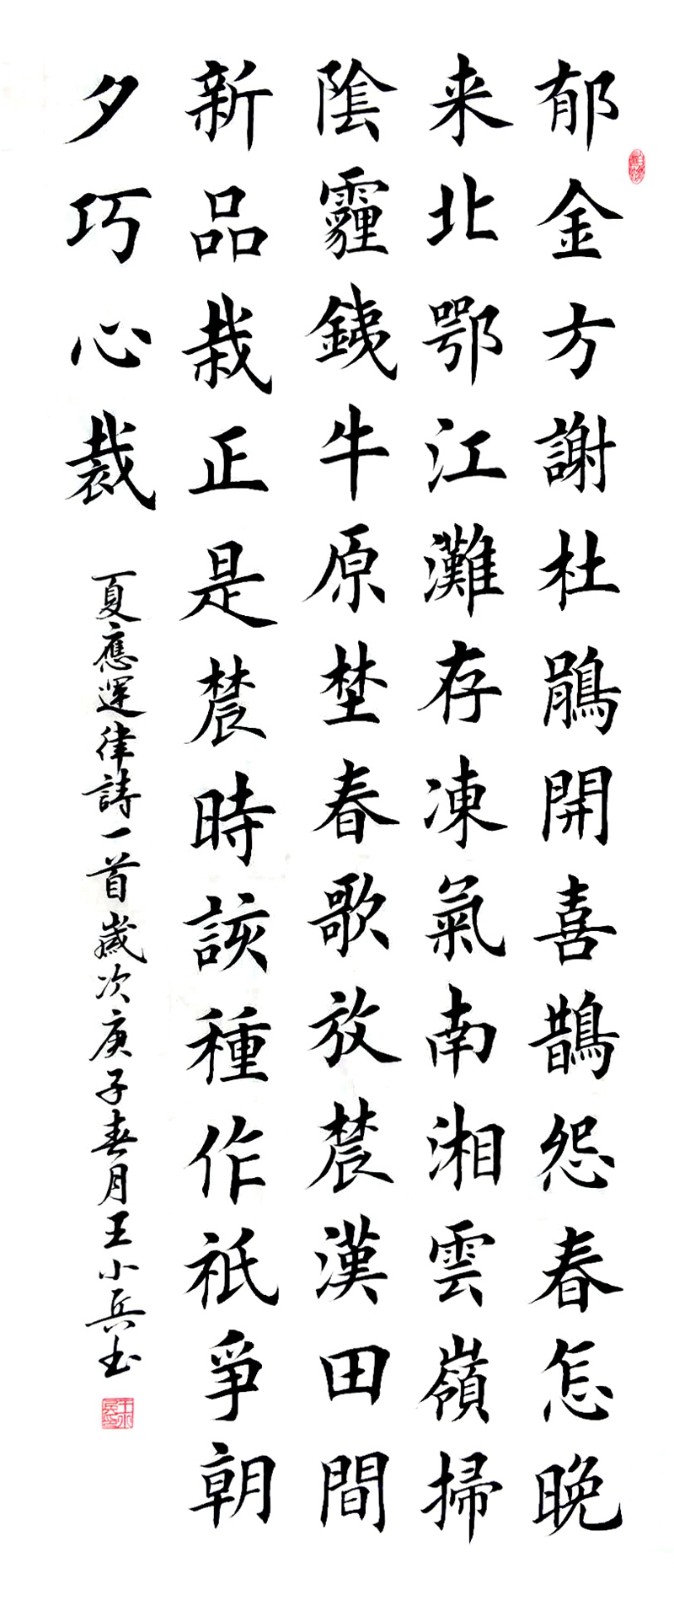 郁金方謝杜鵑開喜鵲怨春怎晚
来北鄂江灘存凍氣南湘雲嶺掃
陰霾銕牛原埜春歌放辳漢田間
新品栽正是辳時該種作祇爭朝
夕巧心裁
夏應運律詩一首歲次庚子春月王小兵书